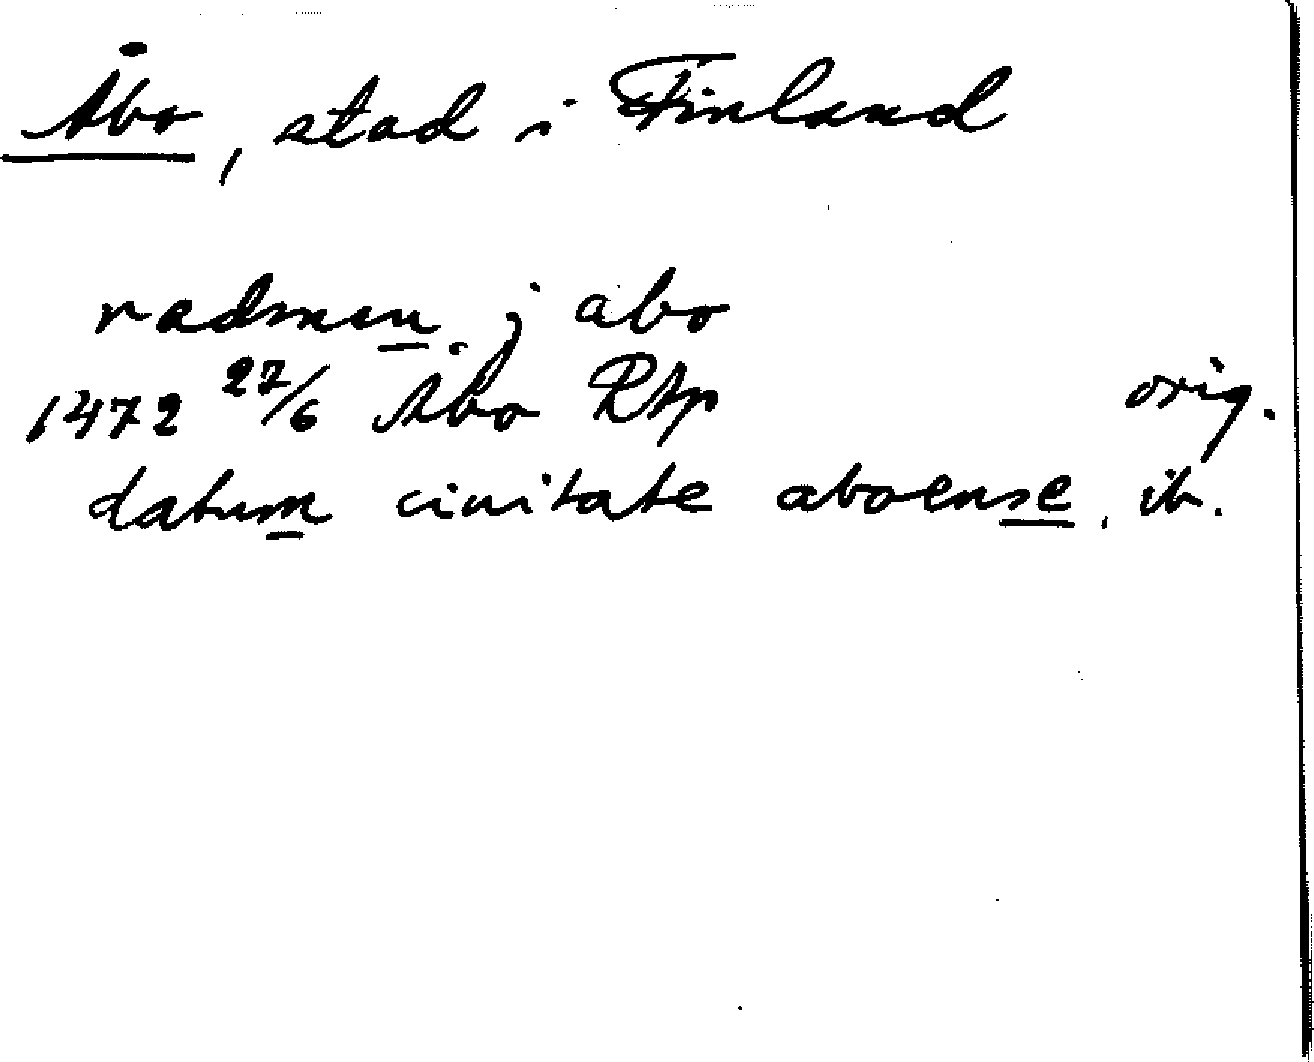 Åbo, stad i Finland
radmen j abo
1472 27/6 Åbo RAp orig.
datum ciuitate aboense, ib.